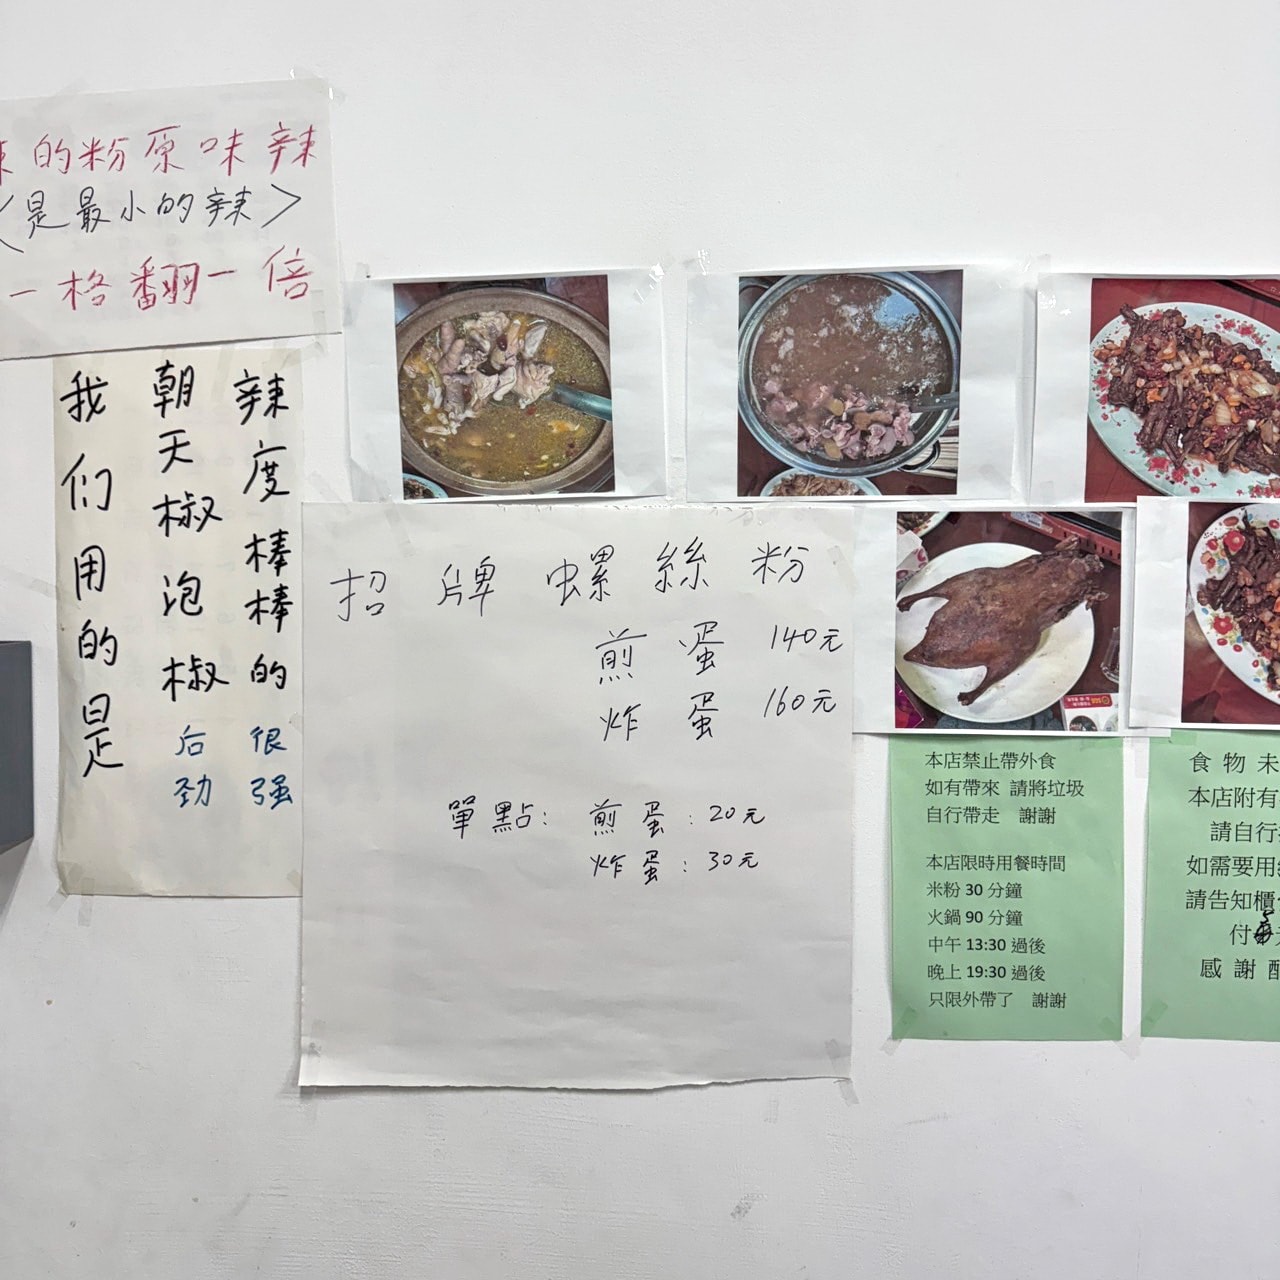 的粉原味辣
<是最小的辣>
一格翻一倍
我们用的是
朝天椒泡椒后劲
辣度棒棒的很强
招牌螺絲粉
煎蛋 140元
炸蛋 160元
單點：煎蛋：20元
炸蛋：30元
本店禁止帶外食
如有帶來 請將垃圾
自行帶走 謝謝
本店限時用餐時間
米粉 30 分鐘
火鍋 90 分鐘
中午 13:30 過後
晚上 19:30 過後
只限外帶了 謝謝
食物未
本店附有
請自行
如需要用
請告知櫃
付5
感謝